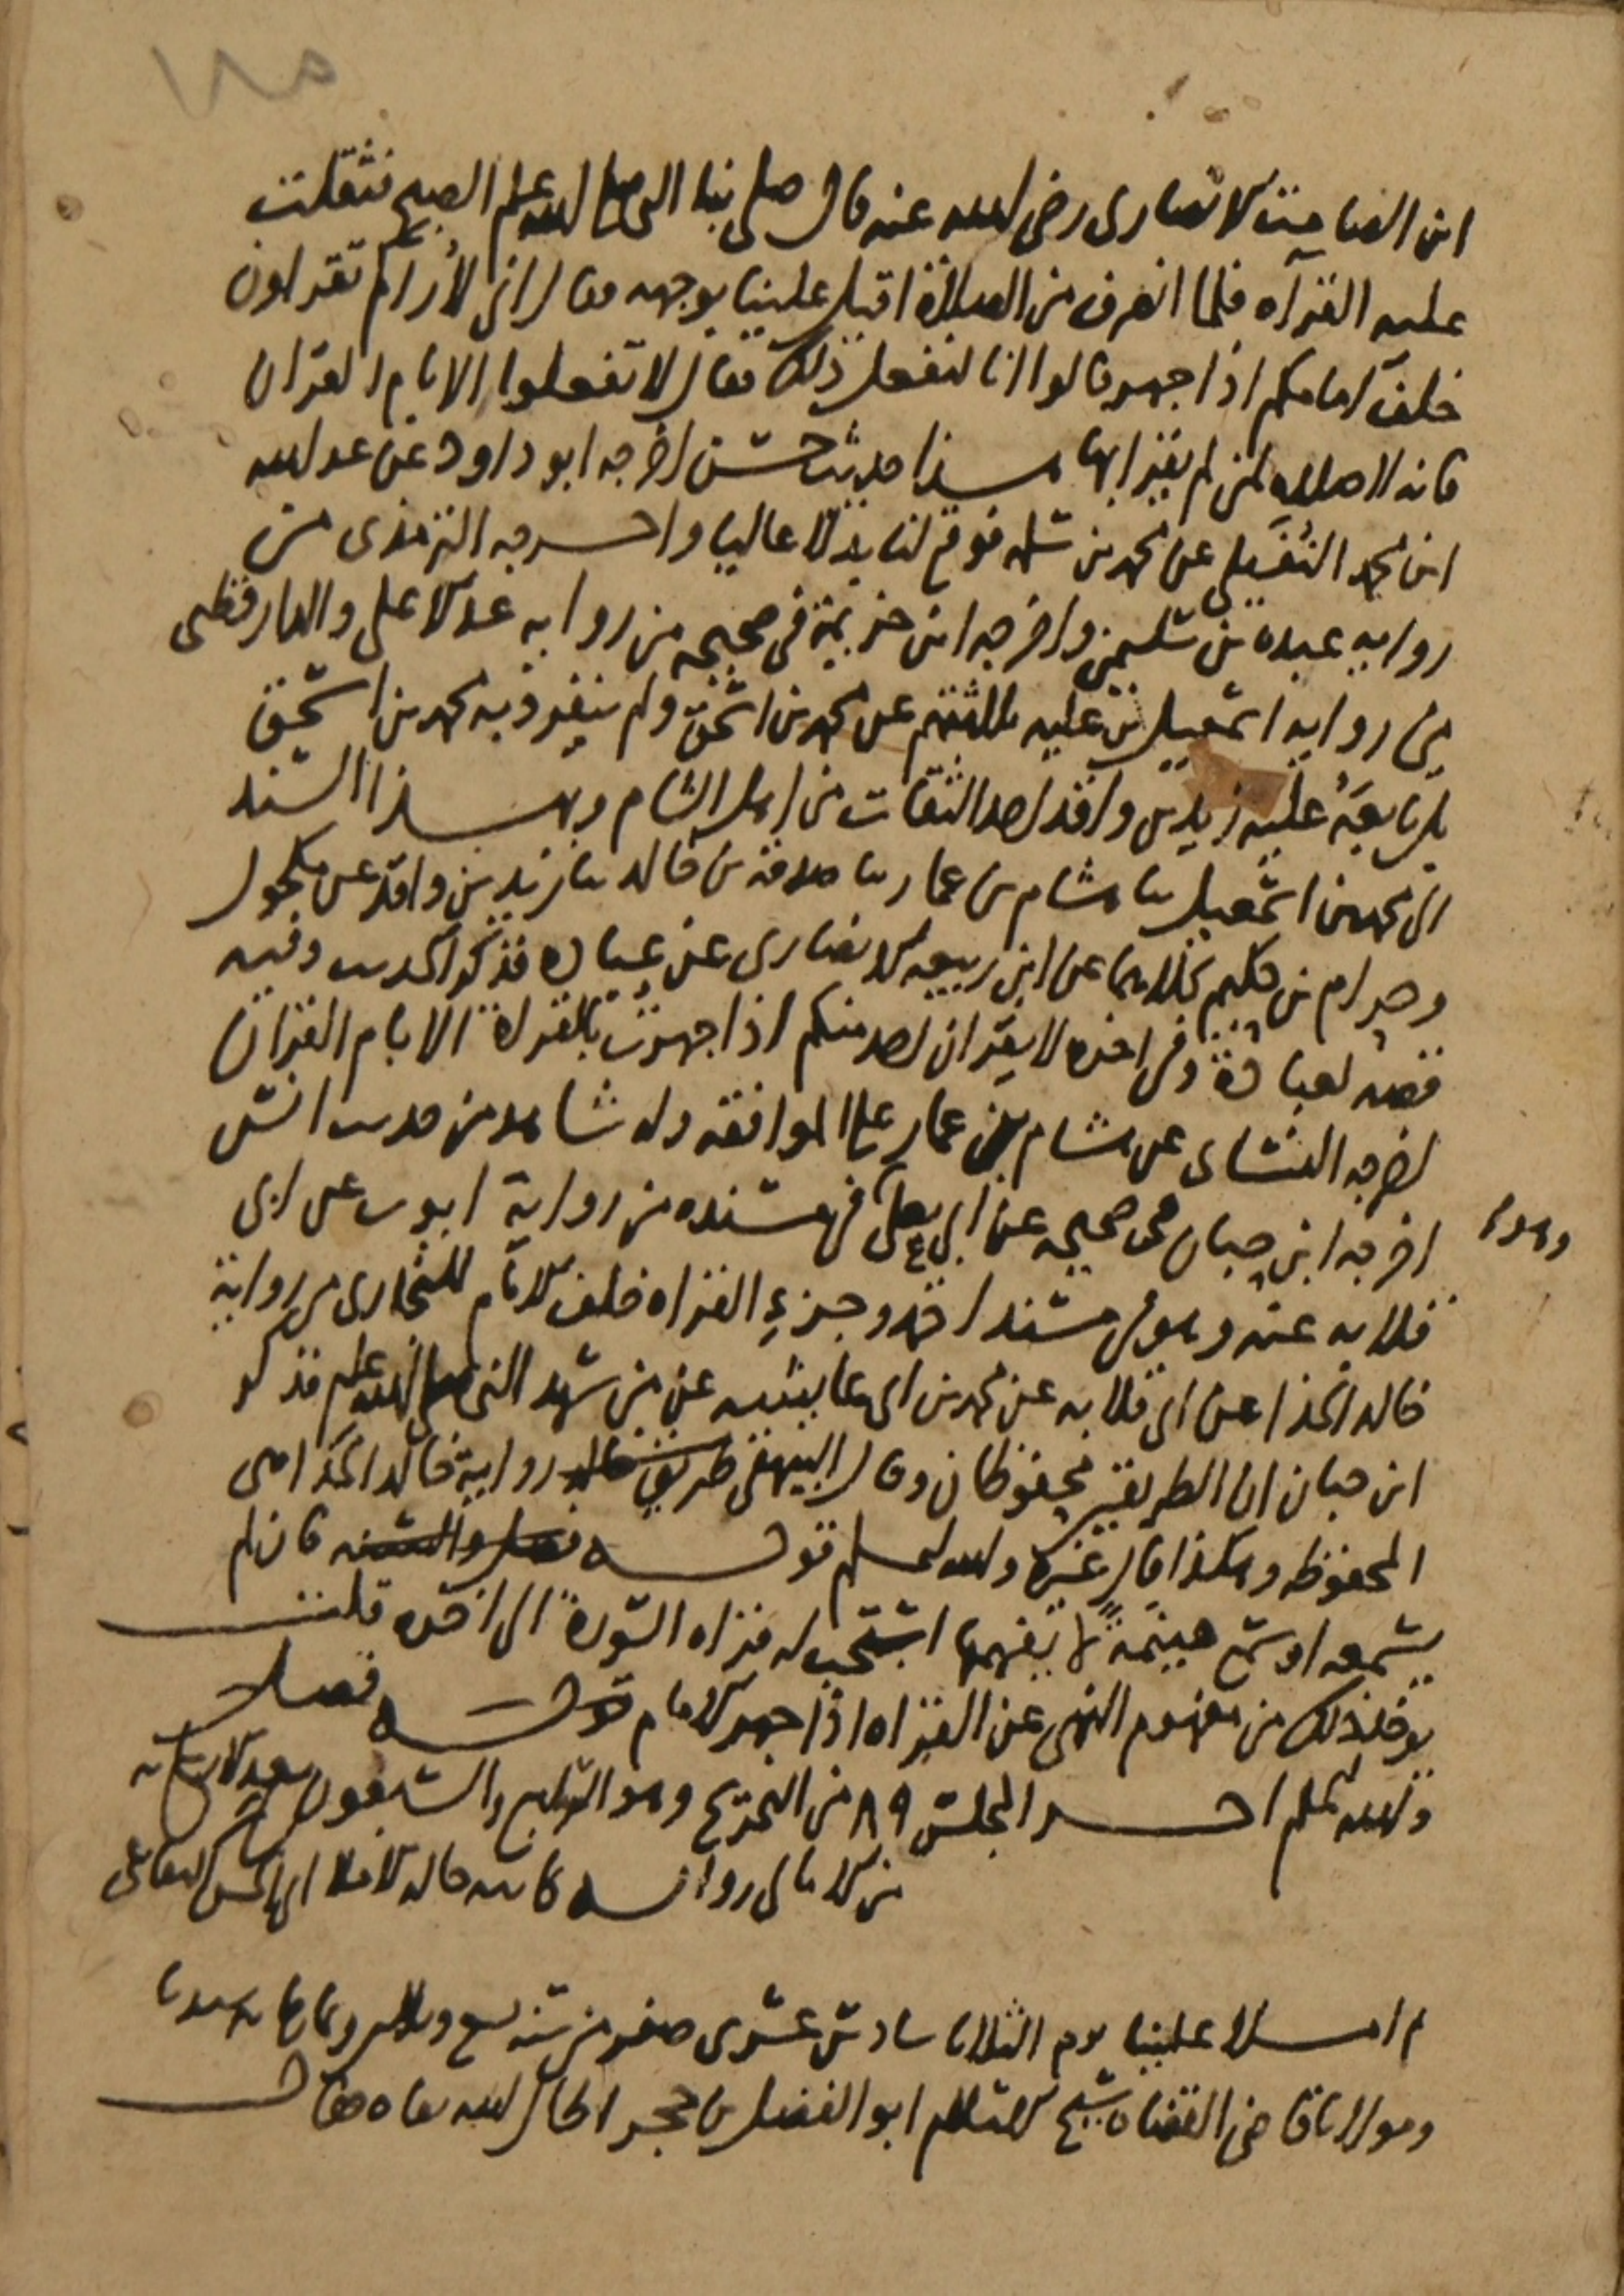 ١٨٥
ابن الصامت الانصارى رضى الله عنه قال صلى بنا النبى صلى الله عليه وسلم الصبح فثقلت
عليه القراه فلما انصرف من الصلاة اقبل علينا بوجهه فقال انى لأراكم تقراون
خلف امامكم اذا جهر قالوا انا لنفعل ذلك فقال لا تفعلوا الا بام القران
فانه لا صلاه لمن لم يقرا بها هذا حديث حسن اخرجه ابو داود عن عبد الله
ابن محمد النفيلى عن محمد بن سلمه فوقع لنا بدلا عاليا واخرجه الترمذى من
روايه عبده بن سليمن واخرجه ابن خزيمة فى صحيحه من روايه عبد الاعلى والدارقطنى
من روايه اسمعيل بن عليه كلهم عن محمد بن اسحق ولم ينفرد به محمد بن اسحق
بل تابعه عليه زيد بن واقد احد الثقات من اهل الشام وبهذا السند
الى محمد بن اسمعيل نا هشام بن عمار نا صدقه بن خالد نا زيد بن واقد عن مكحول
وحرام بن حكيم كلاهما عن ابن ربيعه الانصارى عن عباده فذكر الحديث وفيه
قصه لعبادة وفى اخره لا يقران احد منكم اذا جهرت بالقراة الا بام القران
اخرجه النسائى عن هشام بن عمار على الموافقه وله شاهد من حديث انس
اخرجه ابن حبان فى صحيحه عن ابى يعلى فى مسنده من رواية ايوب عن ابى
قلابه عنه وهو فى مسند احمد وجزء القراه خلف الامام للبخارى من رواية
خالد الحذا عن ابى قلابه عن محمد بن ابى عايشه عن من شهد النبى صلى الله عليه وسلم فذكر
ابن حبان ان الطريقين محفوظان وقال البيهقى طريق خالد رواية خالد الحذا هى
المحفوظه وهكذا قال غيره والله اعلم قوله فصل والسنه فان لم
يسمعه او سمع هينمة لا يفهمها استحب له قراه السورة الى اخره قلت
يوخذ ذلك من مفهوم النهى عن القراه اذا جهر الامام قوله فصل
والله اعلم اخر المجلس ٨٩ من التخريج وهو التاسع والستون بعد الاربعمايه
من الامالى روايه كاتبه خالد الاملا ابى الحسن البقاعى
ثم املا علينا يوم الثلاثا سادس عشرى صفر من سنه سبع وثلاثين وثمانمايه سيدنا
ومولانا قاضى القضاه شيخ الاسلام ابو الفضل بن حجر الحافظ الله تعالى فقال